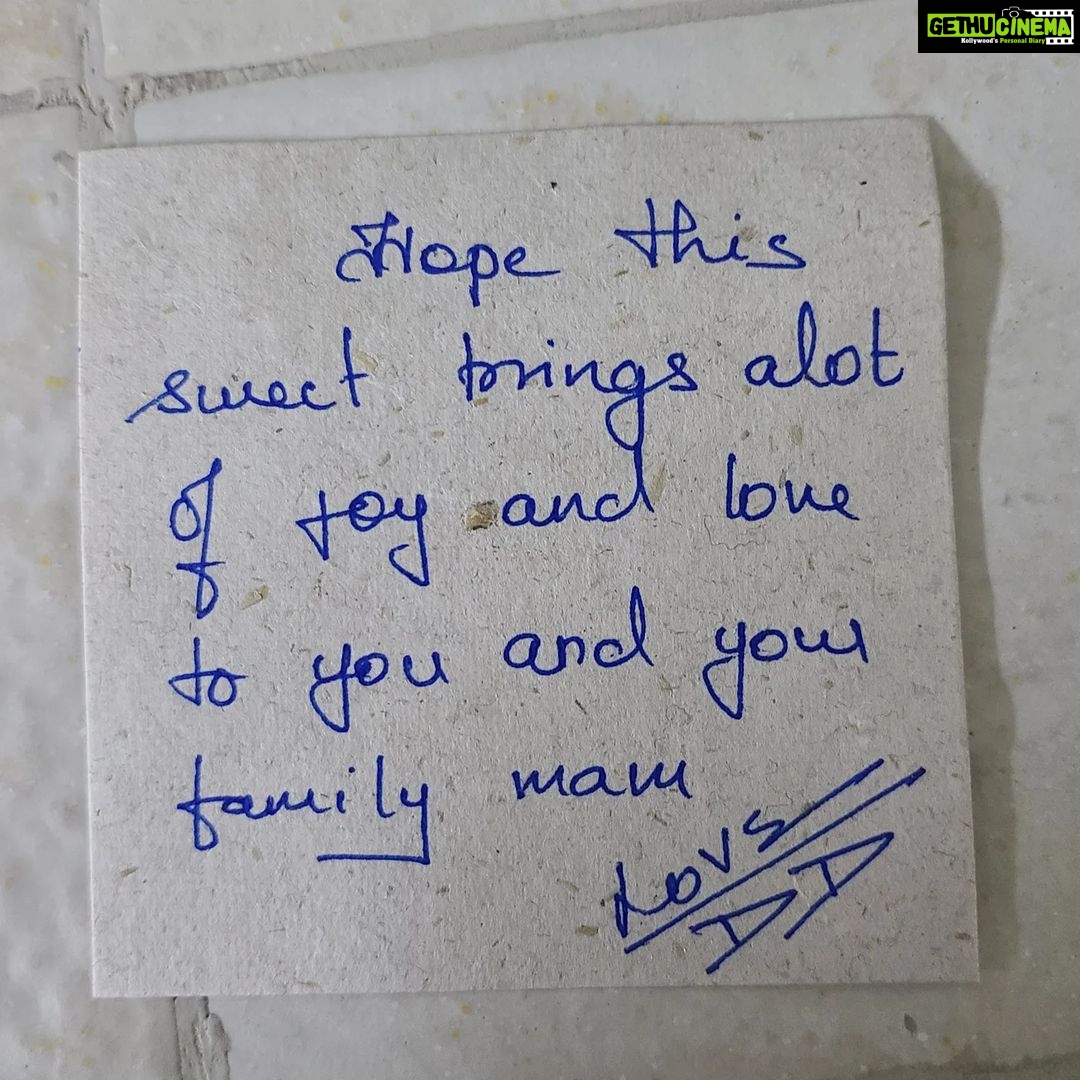 GETHUCINEMA
Kollywood's Personal Diary
Hope this
sweet brings alot
of joy and love
to you and your
family mam
Love
AA